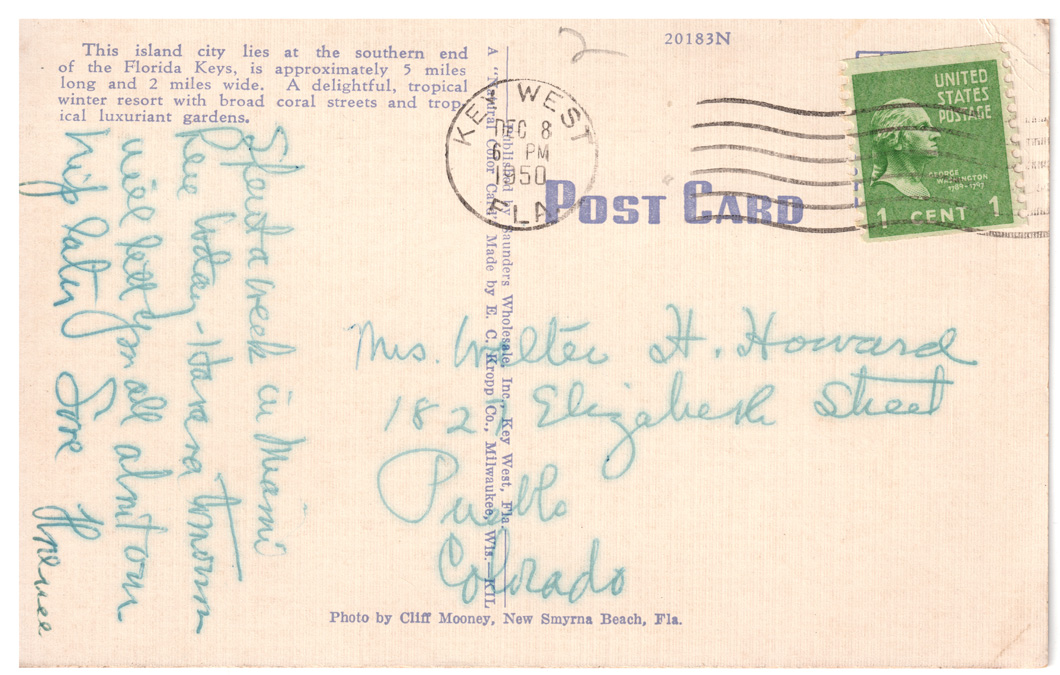 This island city lies at the southern end
of the Florida Keys, is approximately 5 miles
long and 2 miles wide. A delightful, tropical
winter resort with broad coral streets and trop-
ical luxuriant gardens.
Spent a week in Miami
Here today - Havana tomorrow
will tell you all about our
trip later Love
2
20183N
KEY WEST
DEC 8
6 PM
1950
FLA
POST CARD
UNITED
STATES
POSTAGE
GEORGE
WASHINGTON
1789-1797
1 CENT 1
A "Natural Color Card" Made by E. C. Kropp Co., Milwaukee, Wis.—KIL
Published by Saunders Wholesale, Inc., Key West, Fla.
Mrs. Walter H. Howard
182 Elizabeth Street
Pueblo
Colorado
Photo by Cliff Mooney, New Smyrna Beach, Fla.